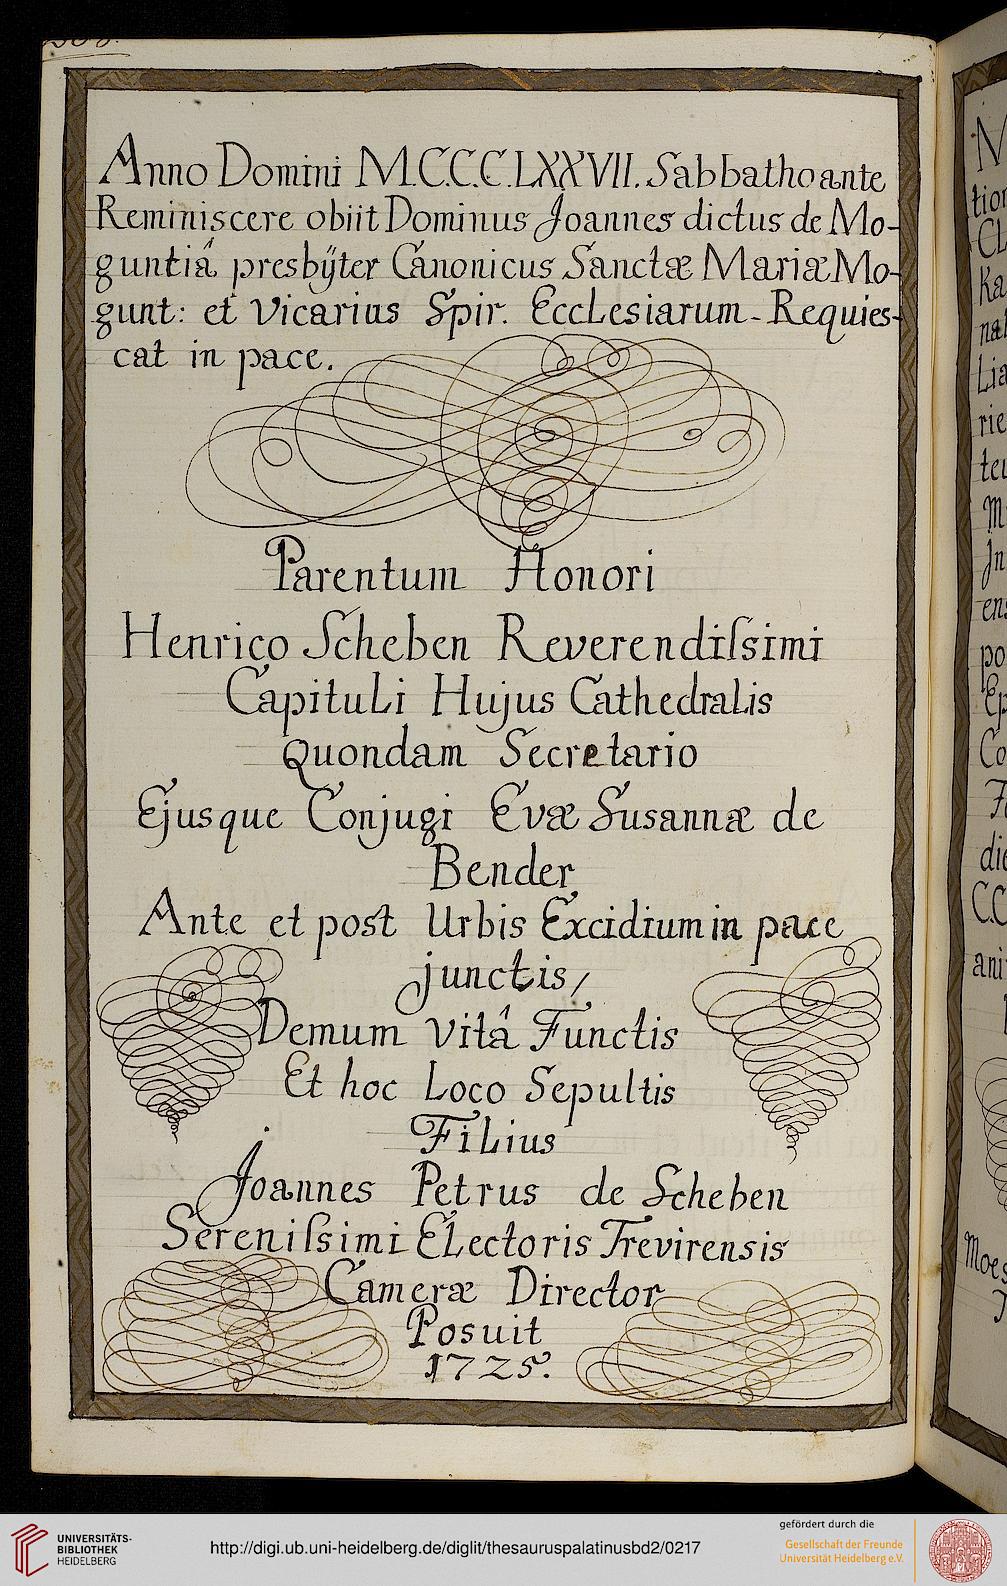 Anno Domini M.C.C.C.LXXVII. Sabbatho ante
Reminiscere obiit Dominus Joannes dictus de Mo-
guntiâ presbÿter Canonicus Sanctæ Mariæ Mo-
gunt: et Vicarius Spir. Ecclesiarum - Requies-
cat in pace.
Parentum Honori
Henrico Scheben Reverendiſsimi
Capituli Hujus Cathedralis
Quondam Secretario
Ejusque Conjugi Evæ Susannæ de
Bender
Ante et post Urbis Excidium in pace
junctis,
Demum Vitâ Functis
Et hoc Loco Sepultis
Filius
Joannes Petrus de Scheben
Sereniſsimi Electoris Trevirensis
Cameræ Director
Posuit
1725.
tion
CL
Ka
nat
Lia
rie
teu
M
Jn
ens
po
Ep
Co
die
CC
ani
Moes
UNIVERSITÄTS-
BIBLIOTHEK
HEIDELBERG
http://digi.ub.uni-heidelberg.de/diglit/thesauruspalatinusbd2/0217
gefördert durch die
Gesellschaft der Freunde
Universität Heidelberg e.V.